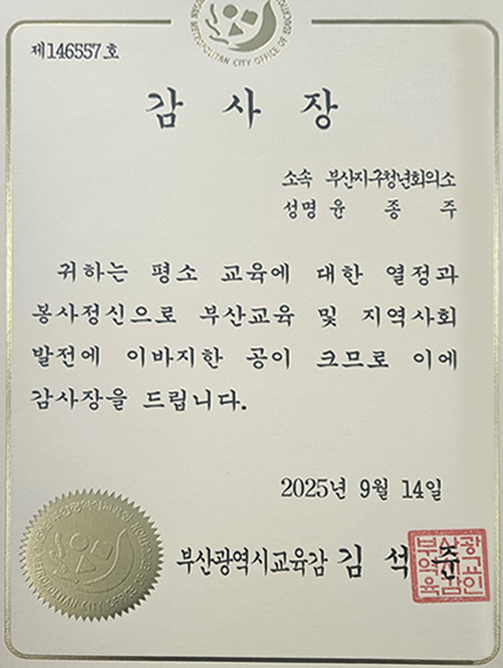 METROPOLITAN CITY OFFICE OF EDUCATION
제146557호
감 사 장
소속 부산지구청년회의소
성명 윤 종 주
귀하는 평소 교육에 대한 열정과
봉사정신으로 부산교육 및 지역사회
발전에 이바지한 공이 크므로 이에
감사장을 드립니다.
2025년 9월 14일
부산광역시교육감 김 석 준